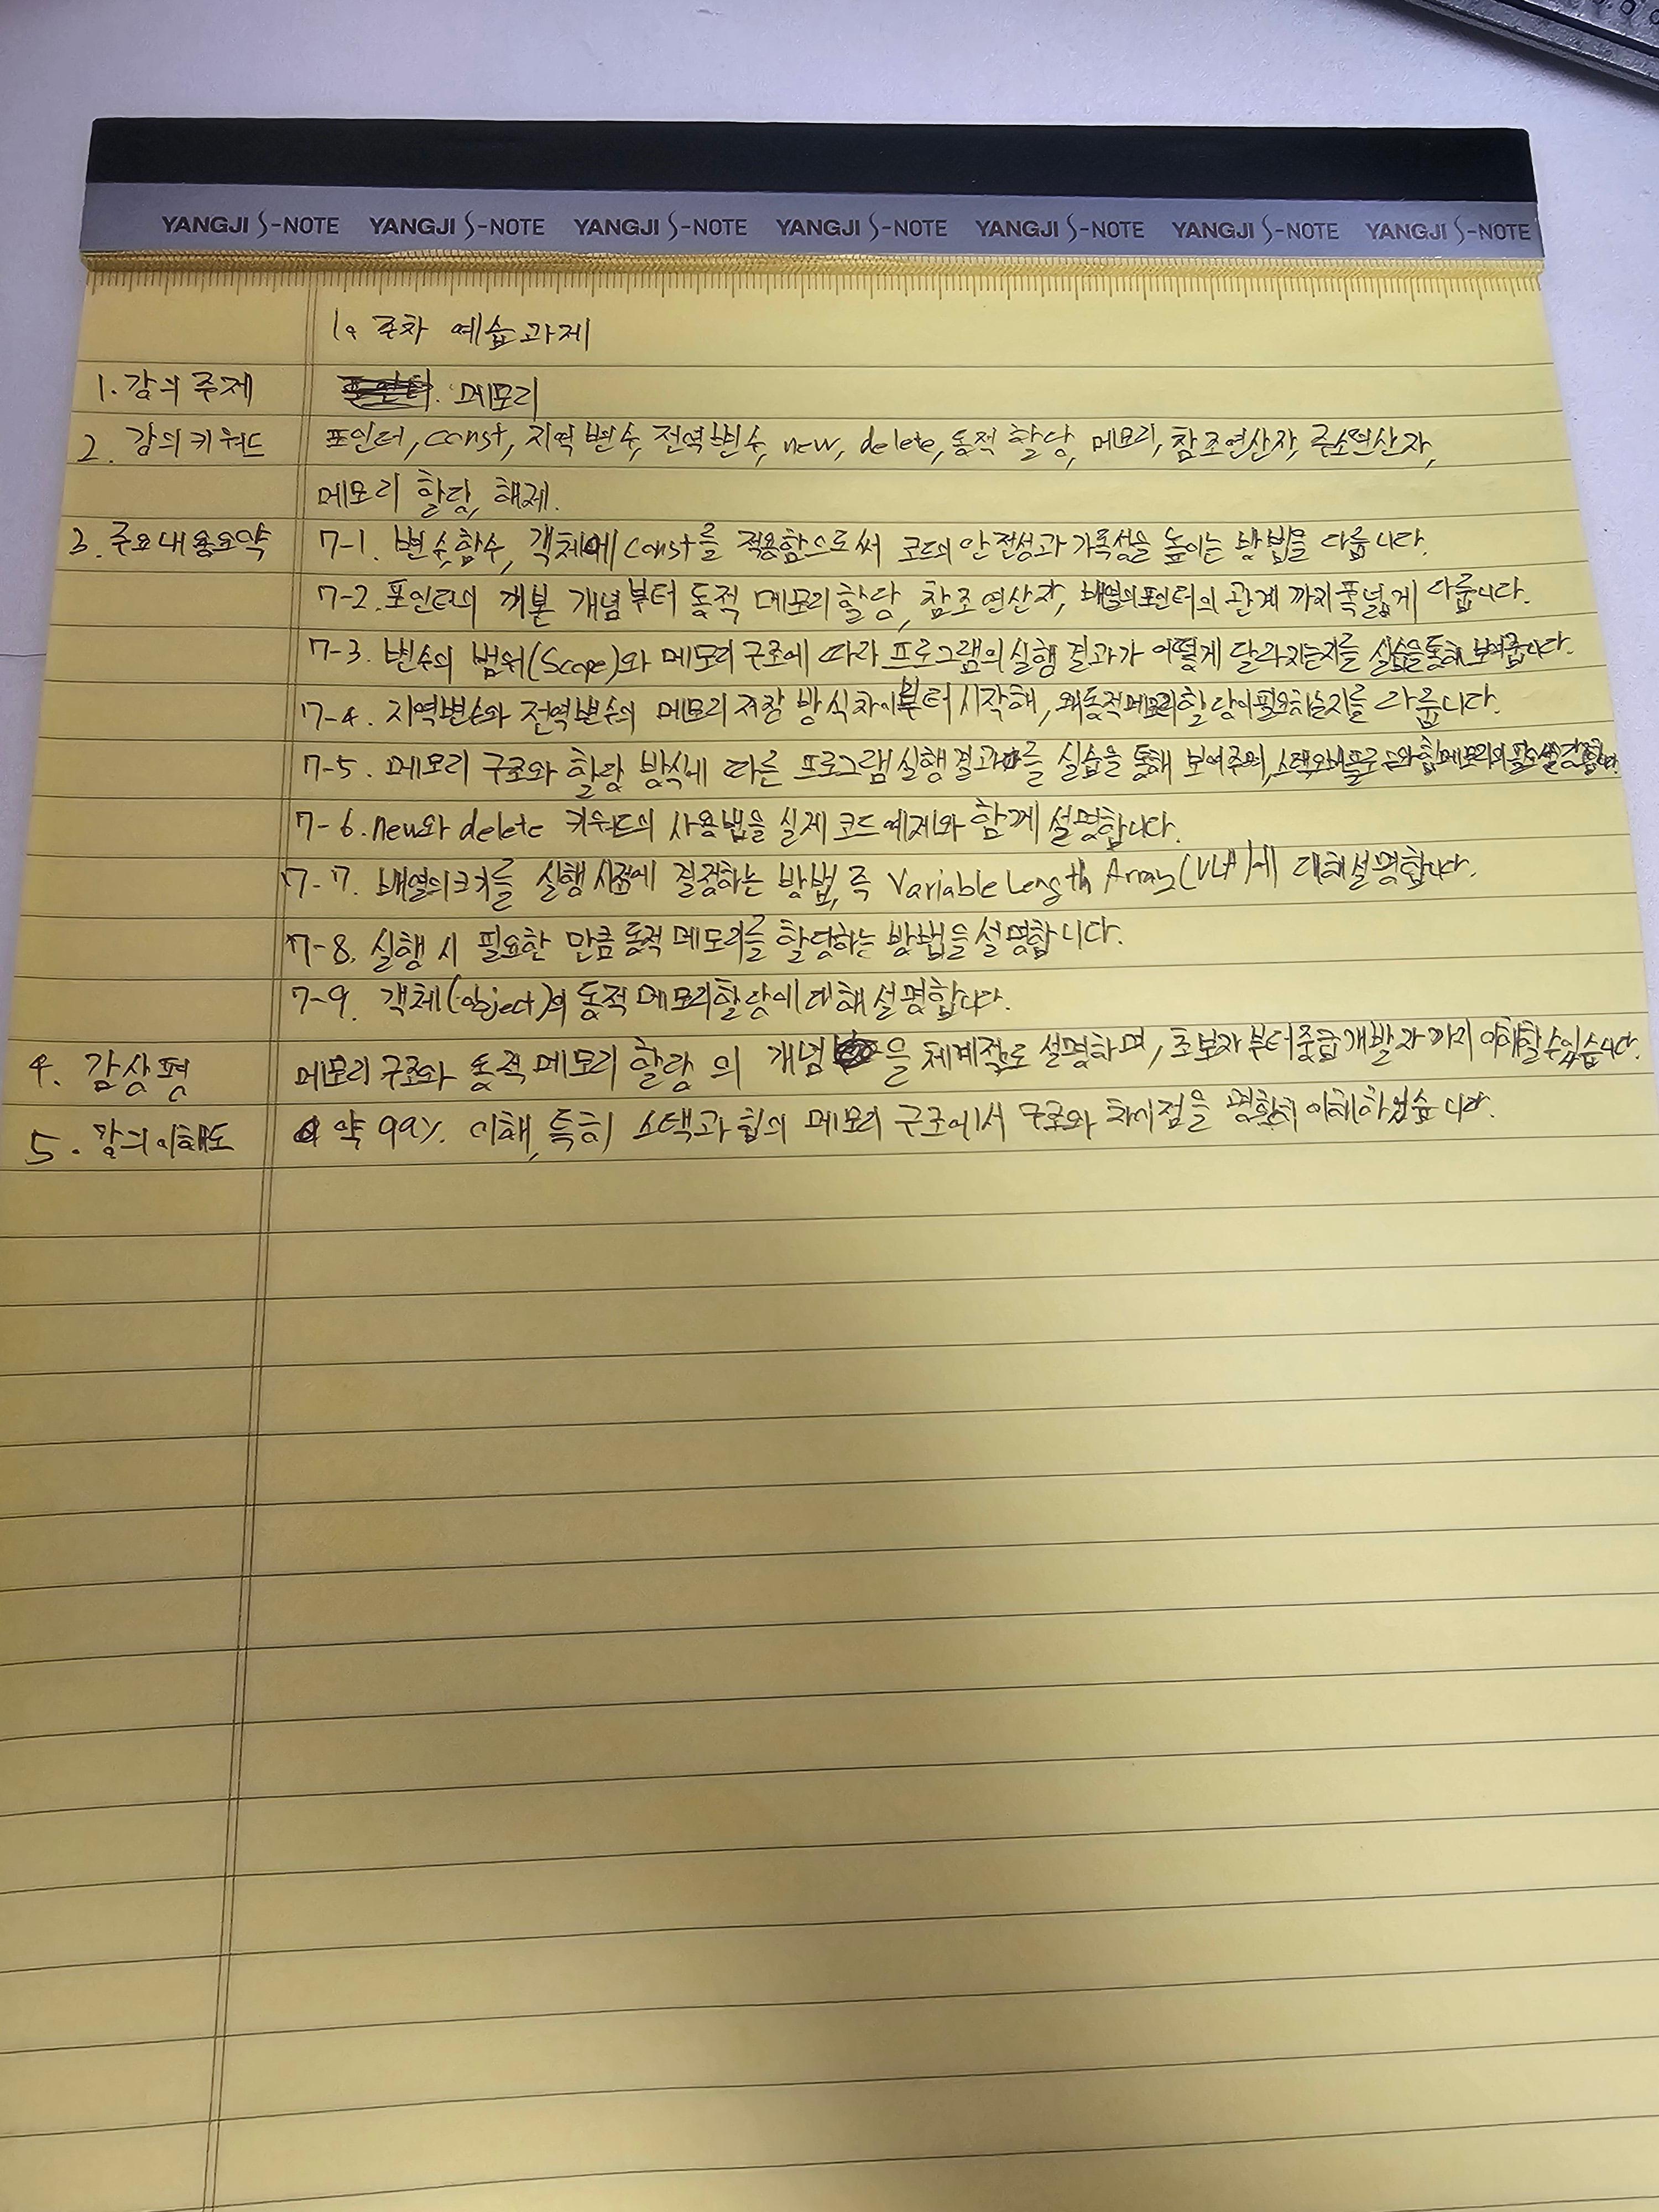 YANGJI S-NOTE YANGJI S-NOTE YANGJI S-NOTE YANGJI S-NOTE YANGJI S-NOTE YANGJI S-NOTE YANGJI S-NOTE
주차 예습과제
1. 강의 주제 메모리
2. 강의 키워드 포인터, const, 지역변수, 전역변수, new, delete, 동적 할당, 메모리, 참조연산자, 주소연산자,
메모리 할당, 해제.
3. 주요내용요약 7-1. 변수, 함수, 객체에 const를 적용함으로써 코드의 안전성과 가독성을 높이는 방법을 다룹니다.
7-2. 포인터의 개본 개념부터 동적 메모리 할당, 참조 연산자, 배열의포인터의 관계 까지 폭넓게 다룹니다.
7-3. 변수의 범위(Scope)와 메모리 구조에 따라 프로그램의 실행 결과가 어떻게 달라지는지를 실습을통해 보여줍니다.
7-4. 지역변수와 전역변수의 메모리 저장 방식차이부터 시작해, 왜동적메모리할당이필요하는지를 다룹니다.
7-5. 메모리 구조와 할당 방식에 따른 프로그램 실행결과를 실습을 통해 보여주며,
7-6. new와 delete 키워드의 사용법을 실제 코드 예제와 함께 설명합니다.
7-7. 배열의크기를 실행 시점에 결정하는 방법, 즉 Variable Length Array(VLA)에 대해설명합니다.
7-8. 실행 시 필요한 만큼 동적 메모리를 할당하는 방법을 설명합니다.
7-9. 객체(object)의 동적 메모리할당에 대해 설명합니다.
4. 감상평 메모리 구조와 동적 메모리 할당 의 개념을 체계적으로 설명하며, 초보자부터중급개발자까지 이해할수있습니다.
5. 강의이해도 약 99% 이해, 특히 스택과 힙의 메모리 구조에서 구조와 차이점을 명확히 이해하였습니다.